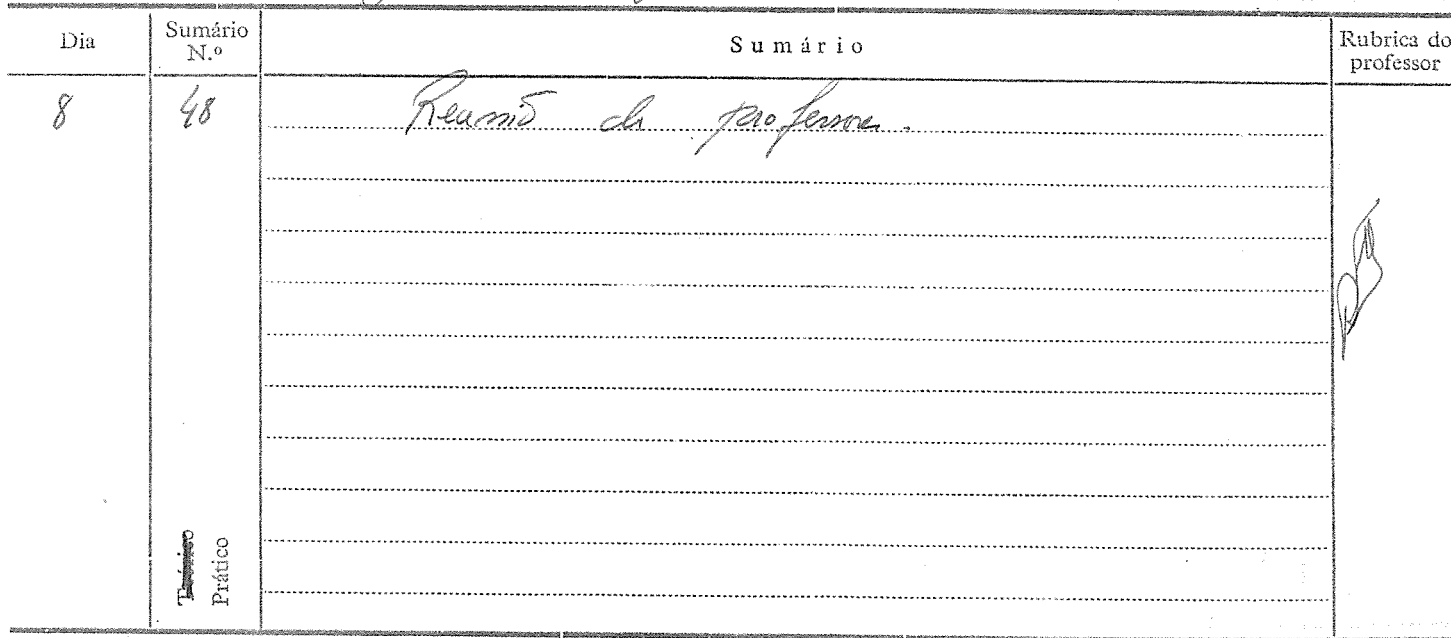 Dia
Sumário N.º
Sumário
Rubrica do professor
8
48
Reunião de professores.
Teórico
Prático